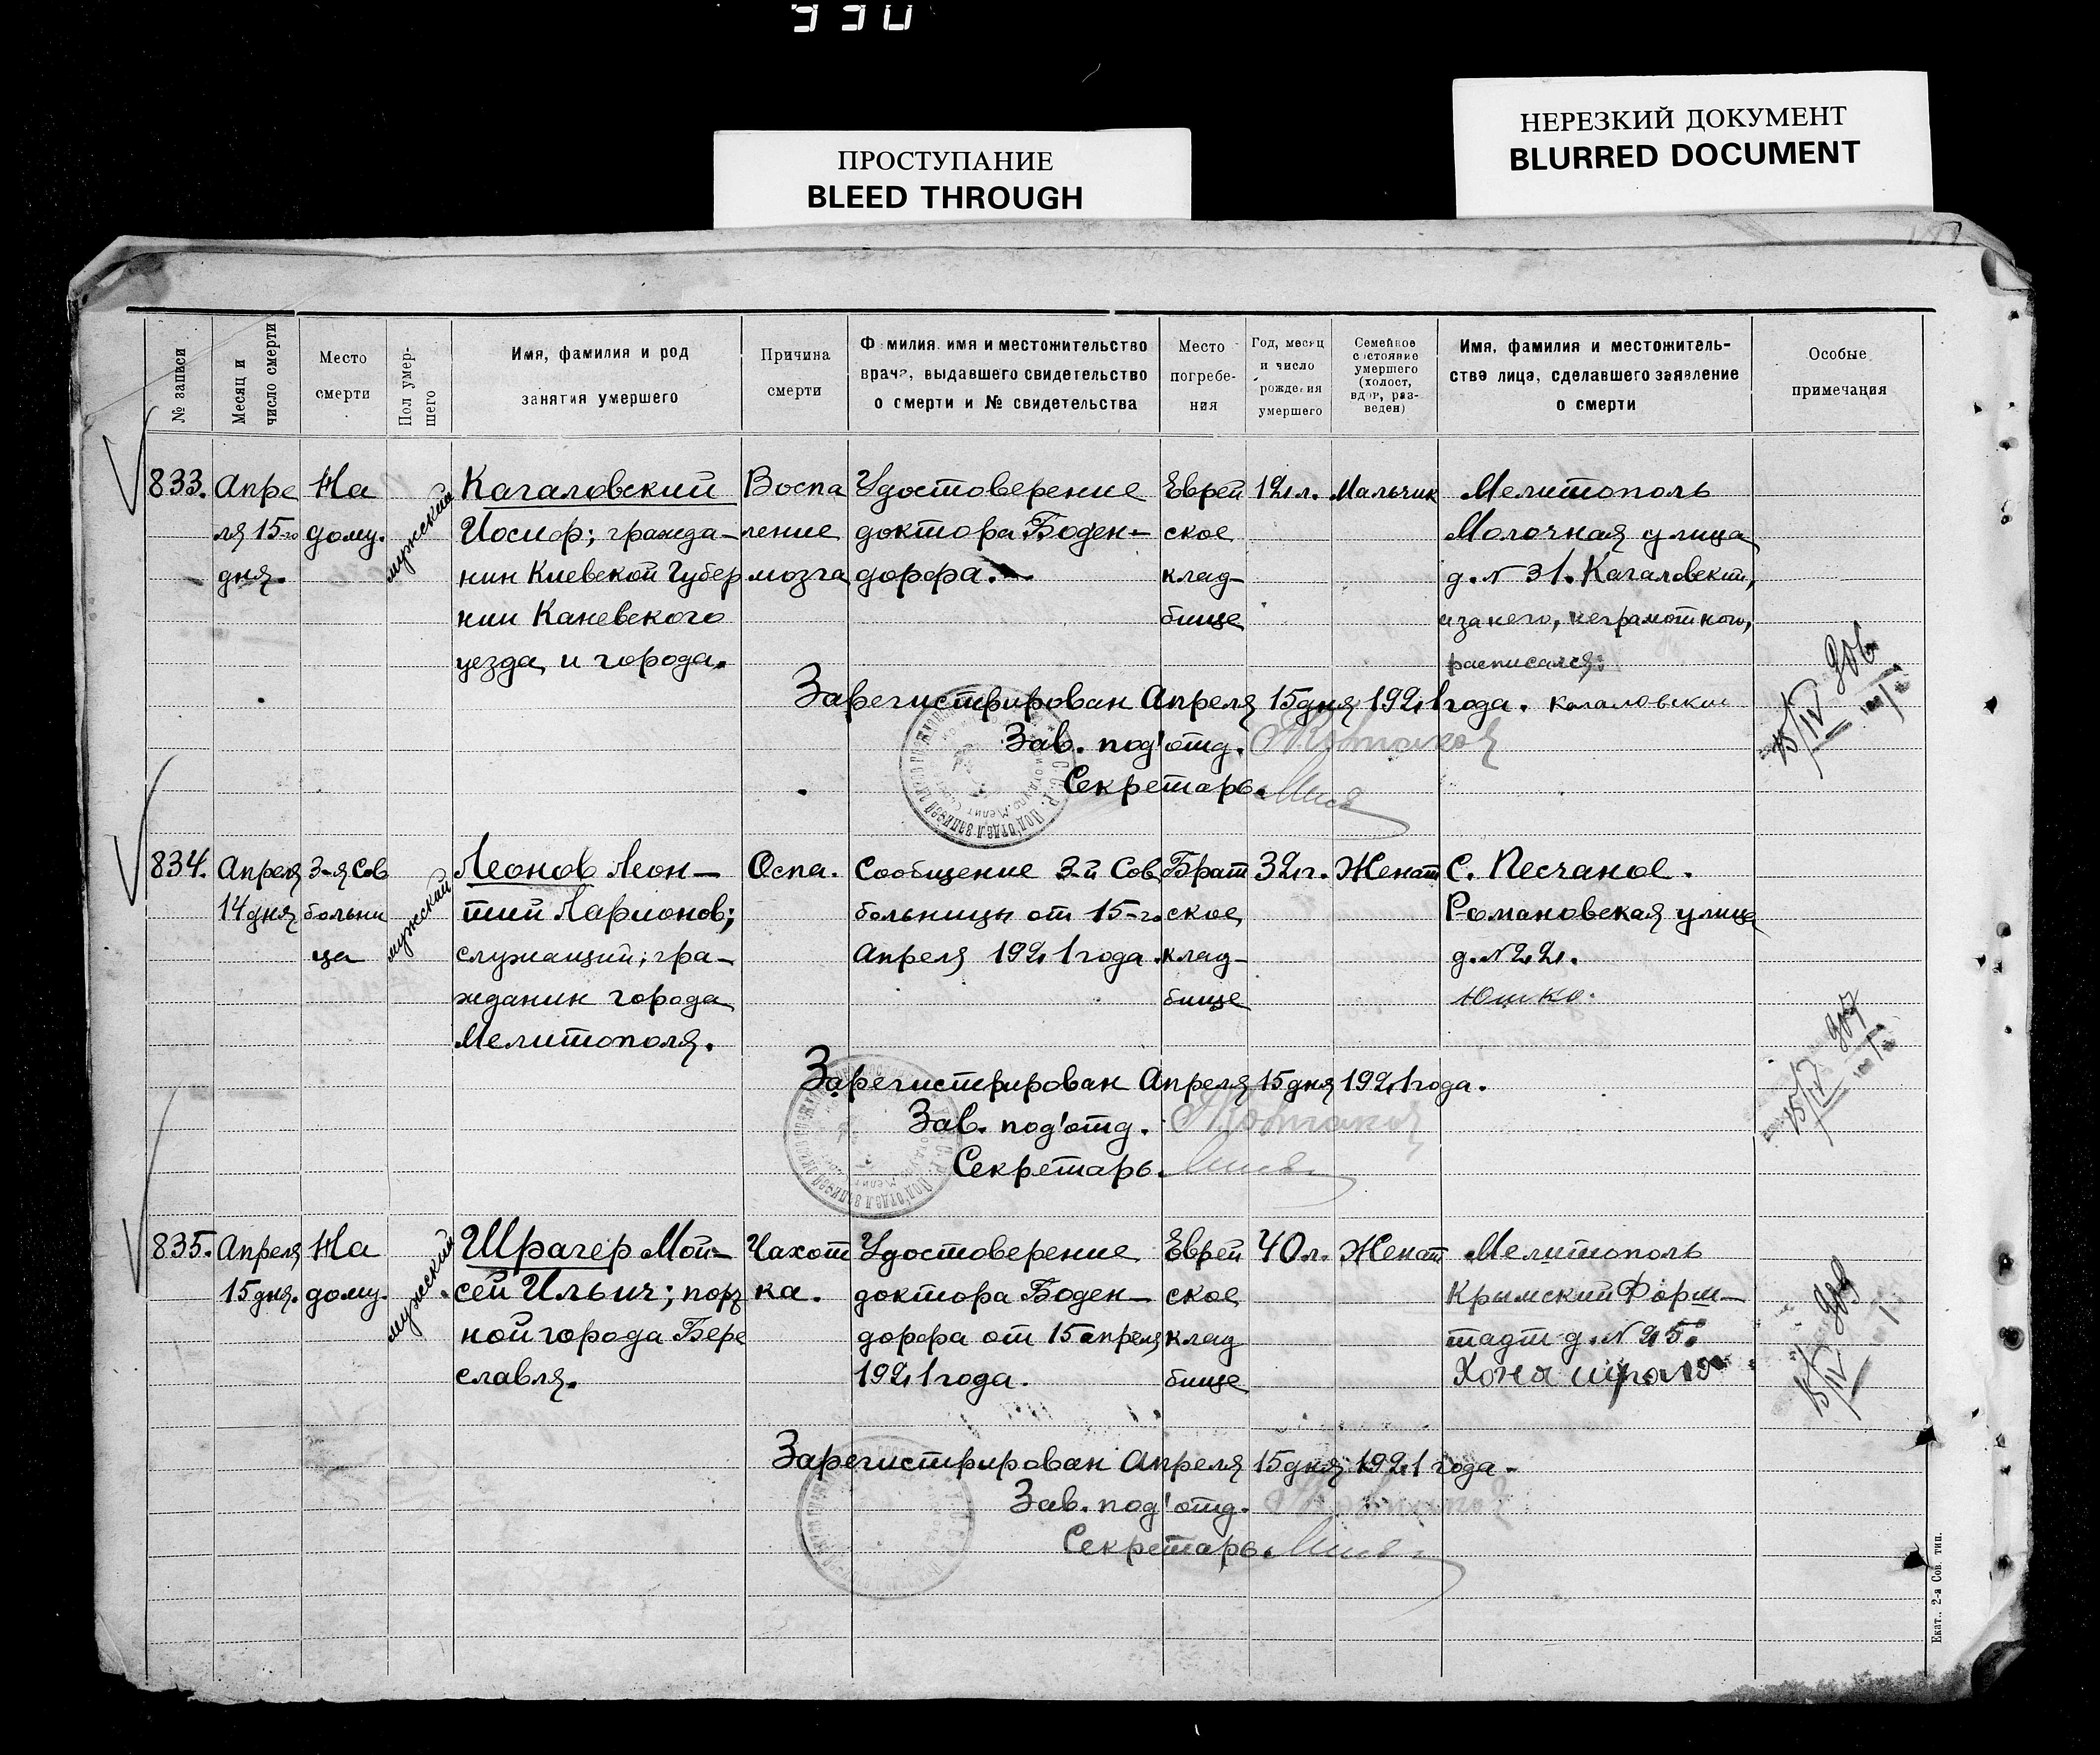 990
ПРОСТУПАНИЕ
BLEED THROUGH
НЕРЕЗКИЙ ДОКУМЕНТ
BLURRED DOCUMENT
№ записи
Месяц и
число смерти
Место
смерти
Пол умер-
шего
Имя, фамилия и род
занятия умершего
Причина
смерти
Фамилия имя и местожительство
врача, выдавшего свидетельство
о смерти и № свидетельства
Место
погребе-
ния
Год, месяц
и число
рождения
умершего
Семейное
состояние
умершего
(холост,
вдов, раз-
веден)
Имя, фамилия и местожитель-
ство лица, сделавшего заявление
о смерти
Особые
примечания
833.
Апре
ля 15-го
дня.
На
дому.
мужский
Кагаловский
Иосиф; гражда-
нин Киевской Губер
нии Каневского
уезда и города.
Воспа
ление
мозга
Удостоверение
доктора Боден-
дорфа.
Еврей
ское
клад-
бище
12 л.
Мальчик
Мелитополь
Молочная улица
д. № 31. Кагаловский,
а за него, неграмотного,
расписался:
Кагаловский
Зарегистрирован Апреля 15 дня 1921 года.
Зав. под'отд.
Секретарь.
15/IV 906
834.
Апреля
14 дня
3-я Сов
больни
ца
мужский
Леонов Леон-
тий Ларионов;
служащий; гра-
жданин города
Мелитополя.
Оспа.
Сообщение 3-й Сов
больницы от 15-го
Апреля 1921 года.
Брат
ское
клад-
бище
32 г.
Женат
С. Песчаное.
Романовская улица
д. № 22.
Юшко.
Зарегистрирован Апреля 15 дня 1921 года.
Зав. под'отд.
Секретарь.
15/IV 907
835.
Апреля
15 дня.
На
дому.
мужский
Шрагер Мои-
сей Ильич; порт
ной города Бере
славля.
Чахот
ка.
Удостоверение
доктора Боден-
дорфа от 15 апреля
1921 года.
Еврей
ское
клад
бище
40 л.
Женат
Мелитополь
Крымский Форш-
тадт д. № 25.
Хона
Зарегистрирован Апреля 15 дня 1921 года.
Зав. под'отд.
Секретарь.
15/IV
Екат.. 2-я Сов. тип.